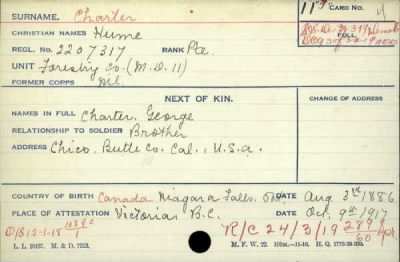 SURNAME. Charter
CARD NO.
CHRISTIAN NAMES Hume
FOLL.
REGL. NO. 2207317 RANK Pte.
UNIT Forestry Co. (M.D. 11)
FORMER CORPS Nil.
NEXT OF KIN. CHANGE OF ADDRESS
NAMES IN FULL Charter, George
RELATIONSHIP TO SOLDIER Brother
ADDRESS Chico, Butte Co. Cal., U.S.A.
COUNTRY OF BIRTH Canada Niagara Falls, Ont. DATE Aug 3rd 1886
PLACE OF ATTESTATION Victoria B.C. DATE Oct. 9th 1917
R/C 24/3/19
L. L. 10433. M. & D. 7253. M. F. W. 72.